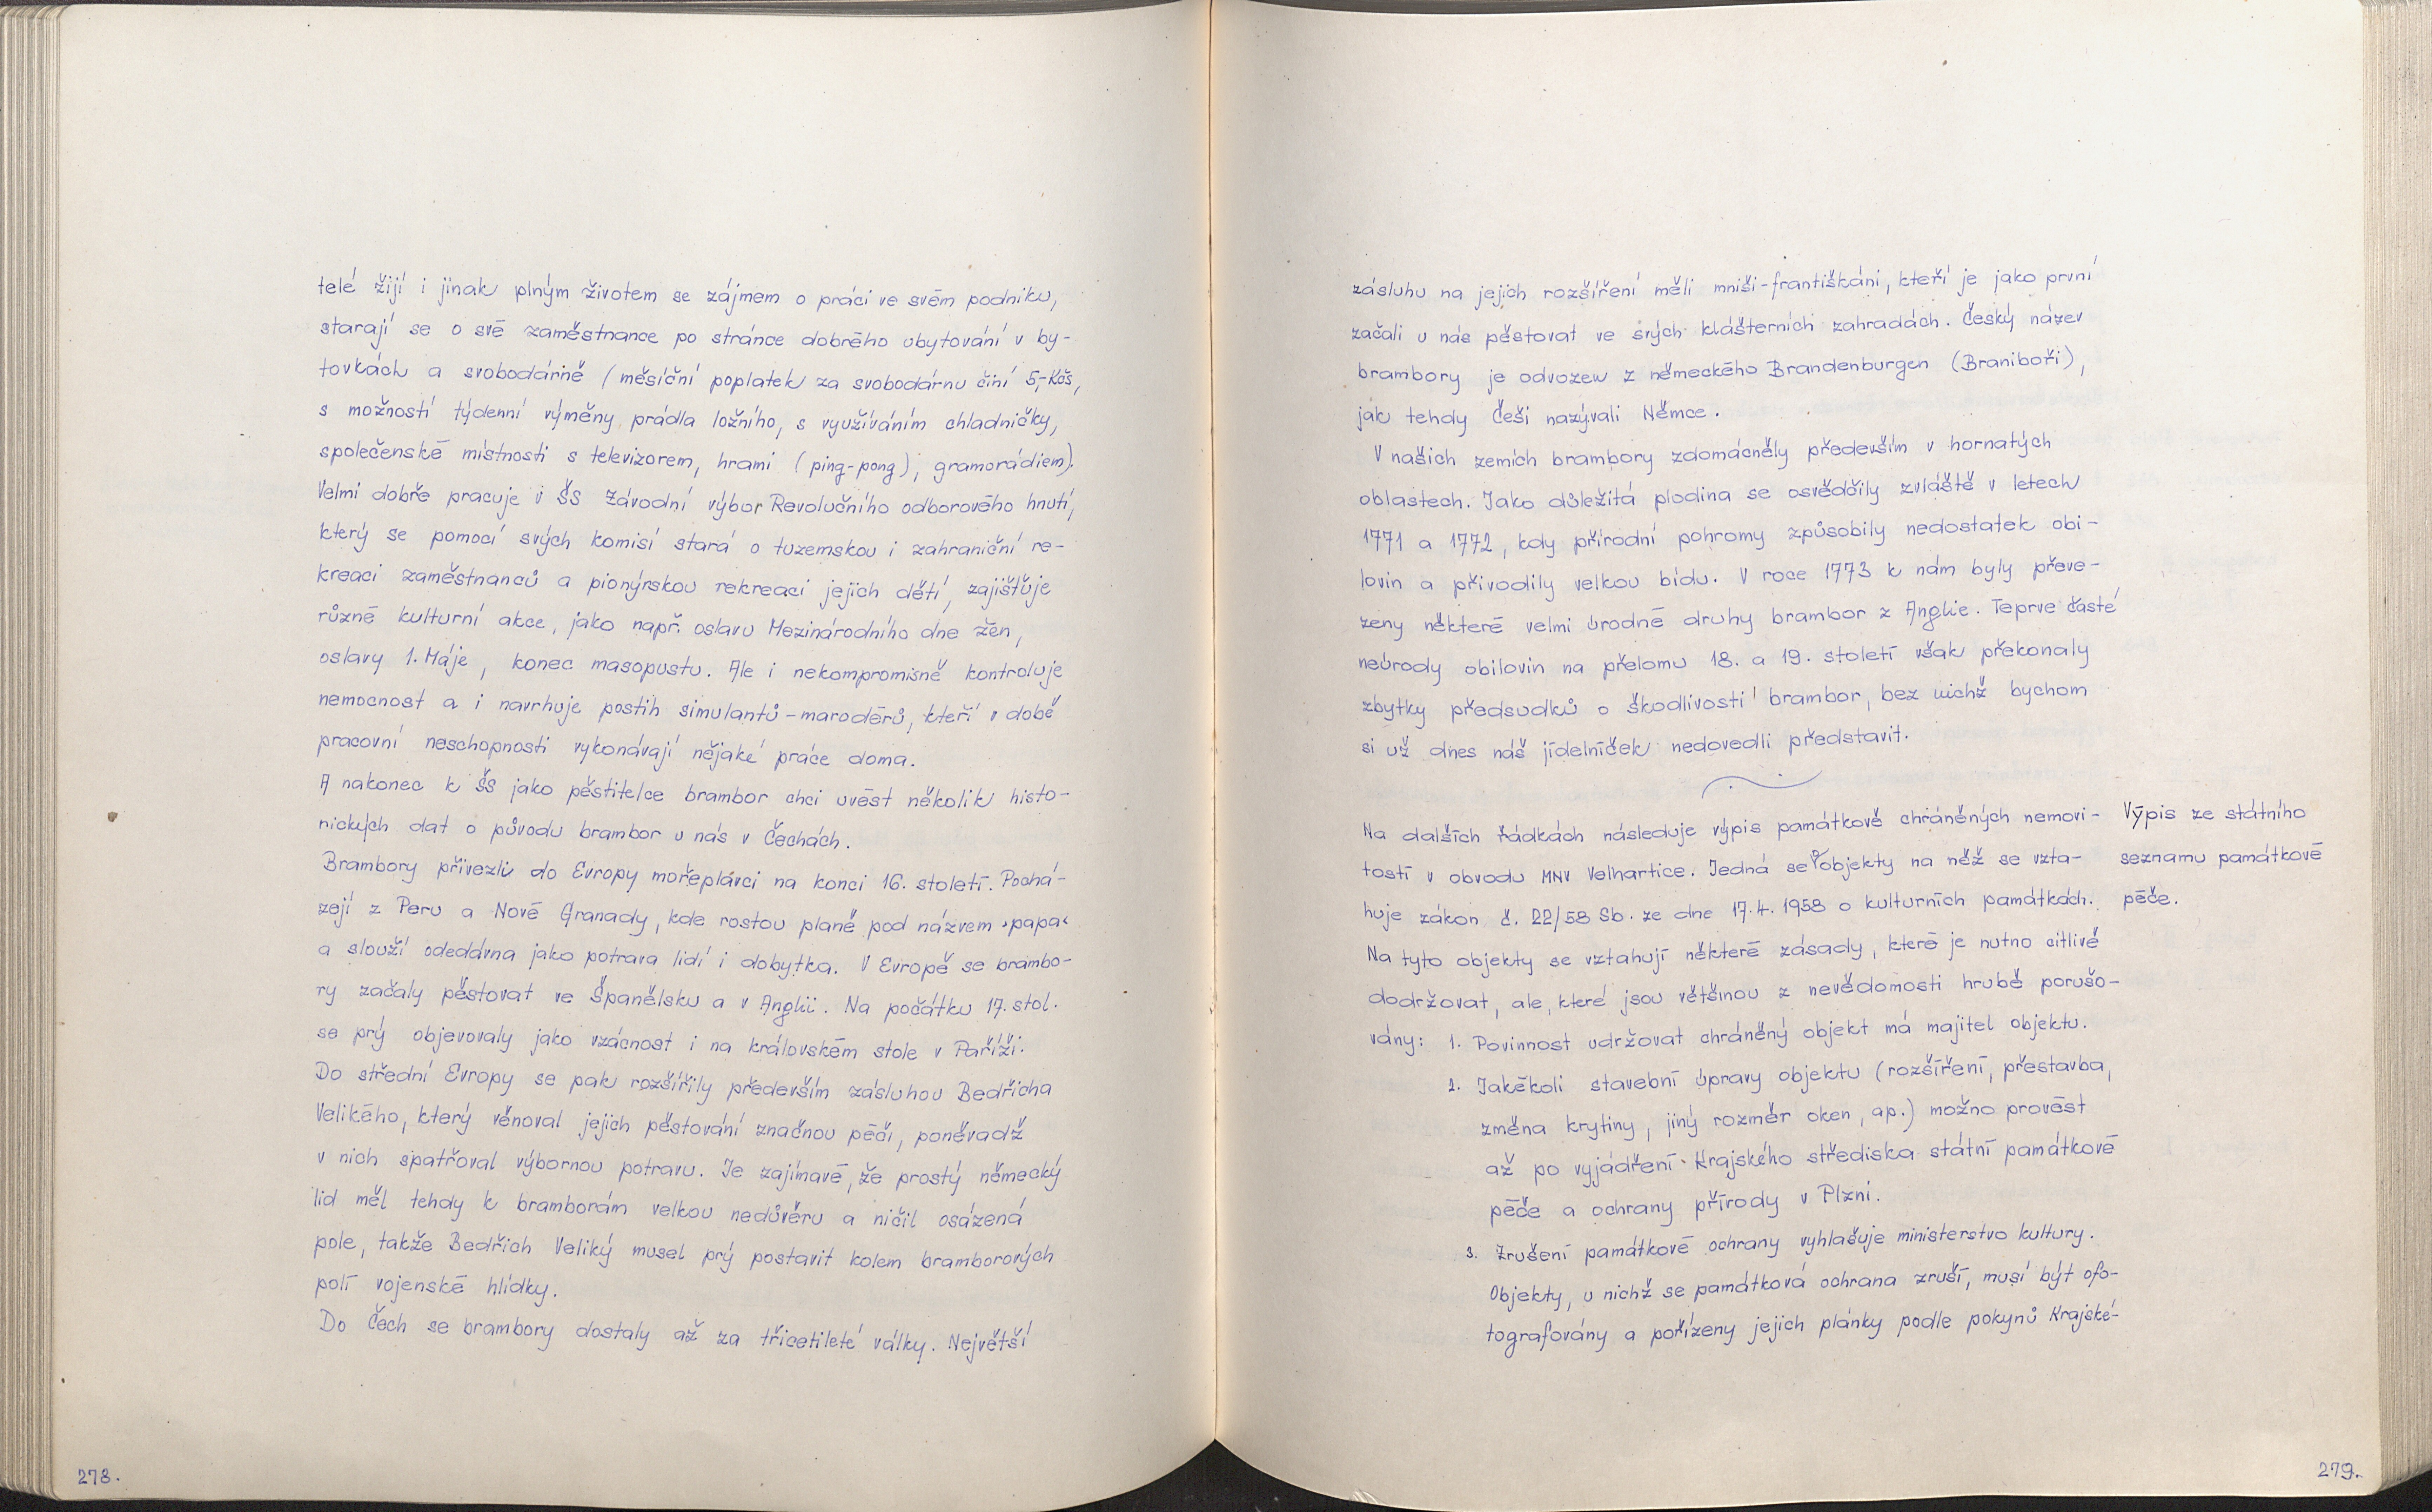 telé žijí i jinak plným životem se zájmem o práci ve svém podniku,
starají se o své zaměstnance po stránce dobrého ubytování v by-
tovkách a svobodárně (měsíční poplatek za svobodárnu činí 5,-Kčs,
s možností týdenní výměny prádla ložního, s využíváním chladničky,
společenské místnosti s televizorem, hrami (ping-pong), gramorádiem).
Velmi dobře pracuje v ŠS Závodní výbor Revolučního odborového hnutí,
který se pomocí svých komisí stará o tuzemskou i zahraniční re-
kreaci zaměstnanců a pionýrskou rekreaci jejich dětí, zajišťuje
různé kulturní akce, jako např. oslavu Mezinárodního dne žen,
oslavy 1. Máje, konec masopustu. Ale i nekompromisně kontroluje
nemocnost a i navrhuje postih simulantů-marodérů, kteří v době
pracovní neschopnosti vykonávají nějaké práce doma.
A nakonec k ŠS jako pěstitelce brambor chci uvést několik histo-
rických dat o původu brambor u nás v Čechách.
Brambory přivezli do Evropy mořeplavci na konci 16. století. Pochá-
zejí z Peru a Nové Granady, kde rostou planě pod názvem "papa"
a slouží odedávna jako potrava lidí i dobytka. V Evropě se brambo-
ry začaly pěstovat ve Španělsku a v Anglii. Na počátku 17. stol.
se prý objevovaly jako vzácnost i na královském stole v Paříži.
Do střední Evropy se pak rozšířily především zásluhou Bedřicha
Velikého, který věnoval jejich pěstování značnou péči, poněvadž
v nich spatřoval výbornou potravu. Je zajímavé, že prostý německý
lid měl tehdy k bramborám velkou nedůvěru a ničil osázená
pole, takže Bedřich Veliký musel prý postavit kolem bramborových
polí vojenské hlídky.
Do Čech se brambory dostaly až za třicetileté války. Největší
278.
zásluhu na jejich rozšíření měli mniši-františkáni, kteří je jako první
začali u nás pěstovat ve svých klášterních zahradách. Český název
brambory je odvozen z německého Brandenburgen (Braniboři),
jak tehdy Češi nazývali Němce.
V našich zemích brambory zdomácněly především v hornatých
oblastech. Jako důležitá plodina se osvědčily zvláště v letech
1771 a 1772, kdy přírodní pohromy způsobily nedostatek obi-
lovin a přivodily velkou bídu. V roce 1773 k nám byly převe-
zeny některé velmi úrodné druhy brambor z Anglie. Teprve časté
neúrody obilovin na přelomu 18. a 19. století však překonaly
zbytky předsudků o škodlivosti brambor, bez nichž bychom
si už dnes náš jídelníček nedovedli představit.
Na dalších řádkách následuje výpis památkově chráněných nemovi-
tostí v obvodu MNV Velhartice. Jedná se o objekty na něž se vzta-
huje zákon č. 22/58 Sb. ze dne 17.4.1958 o kulturních památkách.
Na tyto objekty se vztahují některé zásady, které je nutno citlivě
dodržovat, ale, které jsou většinou z nevědomosti hrubě porušo-
vány: 1. Povinnost udržovat chráněný objekt má majitel objektu.
2. Jakékoli stavební úpravy objektu (rozšíření, přestavba,
změna krytiny, jiný rozměr oken, ap.) možno provést
až po vyjádření Krajského střediska státní památkové
péče a ochrany přírody v Plzni.
3. Zrušení památkové ochrany vyhlašuje ministerstvo kultury.
Objekty, u nichž se památková ochrana zruší, musí být ofo-
tografovány a pořízeny jejich plánky podle pokynů Krajské-
Výpis ze státního
seznamu památkové
péče.
279.